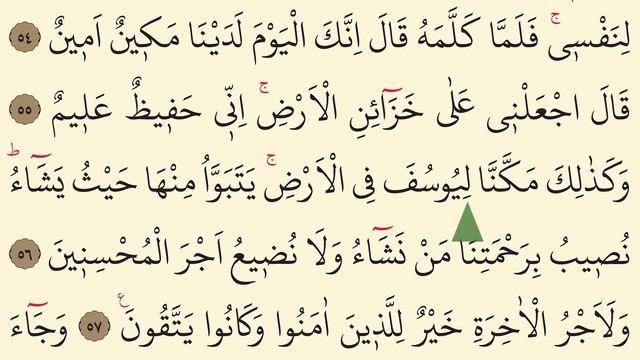 لِنَفْسٖىۚ فَلَمَّا كَلَّمَهُ قَالَ اِنَّكَ الْيَوْمَ لَدَيْنَا مَكٖينٌ اَمٖينٌ ٥٤
قَالَ اجْعَلْنٖى عَلٰى خَزَٓائِنِ الْاَرْضِۚ اِنّٖى حَفٖيظٌ عَلٖيمٌ ٥٥
وَكَذٰلِكَ مَكَّنَّا لِيُوسُفَ فِى الْاَرْضِۚ يَتَبَوَّاُ مِنْهَا حَيْثُ يَشَٓاءُؕ
نُصٖيبُ بِرَحْمَتِنَا مَنْ نَشَٓاءُ وَلَا نُضٖيعُ اَجْرَ الْمُحْسِنٖينَ ٥٦
وَلَاَجْرُ الْاٰخِرَةِ خَيْرٌ لِلَّذٖينَ اٰمَنُوا وَكَانُوا يَتَّقُونَࣖ ٥٧ وَجَٓاءَ